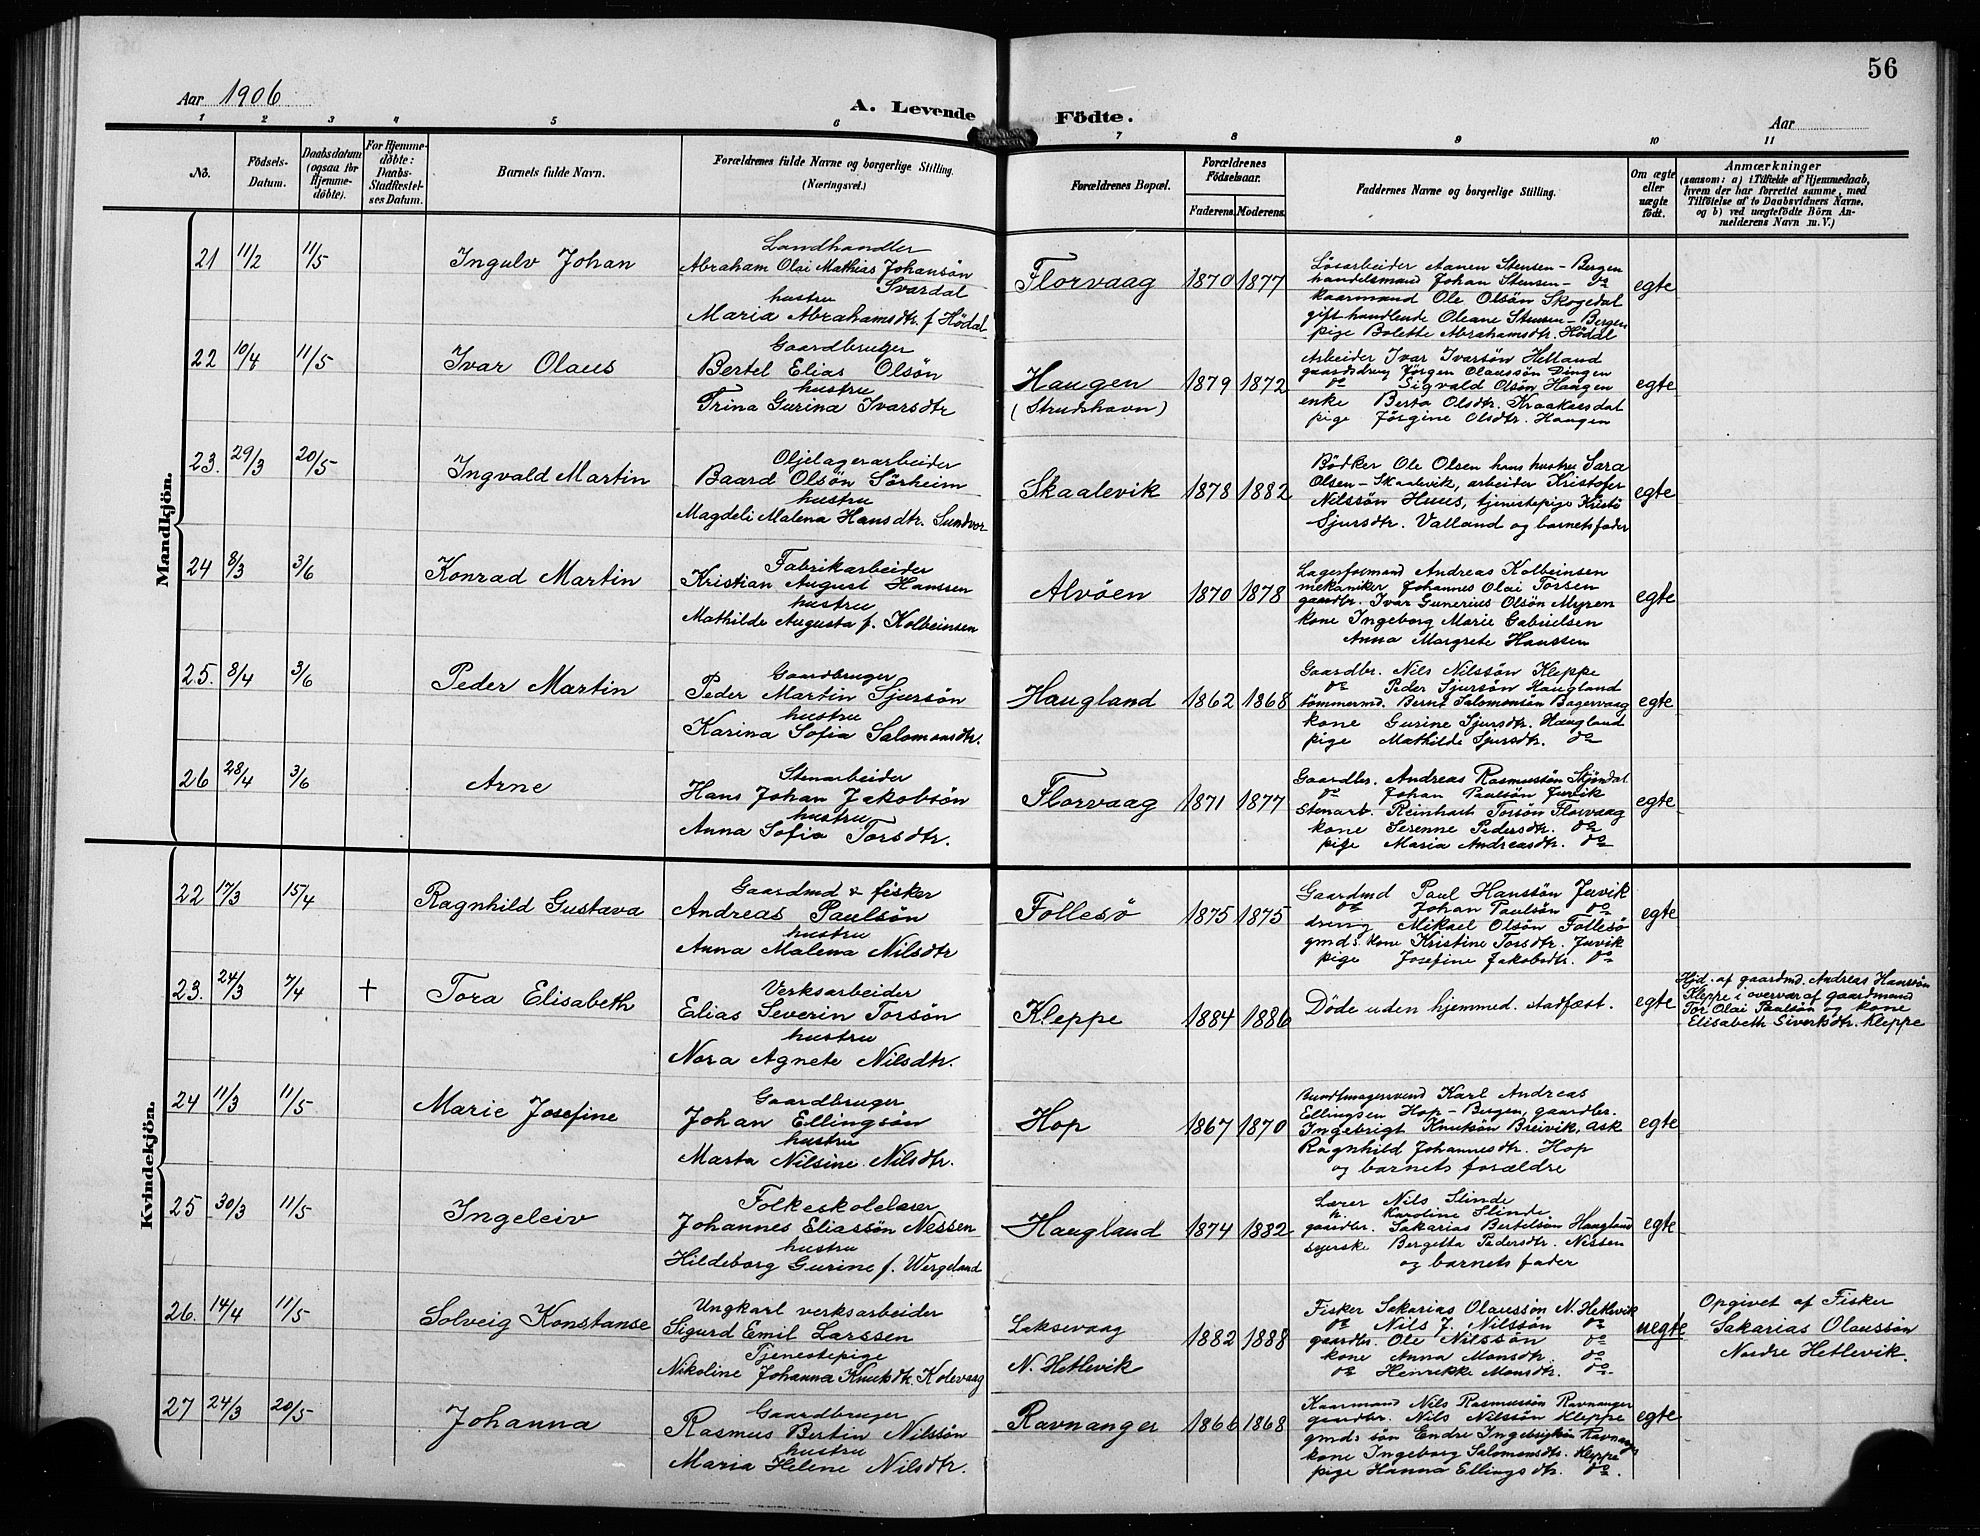 56
Aar 1906
A. Levende Födte.
Aar
1 2 3 4 5 6 7 8 9 10 11
No.
Födsels-Datum.
Daabsdatum (ogsaa for Hjemmedöbte).
For Hjemmedöbte: Daabs-Stadfæstelses Datum.
Barnets fulde Navn.
Forældrenes fulde Navne og borgerlige Stilling.
(Næringsvei.)
Forældrenes Bopæl.
Forældrenes Födselsaar.
Faderens. Moderens.
Faddernes Navne og borgerlige Stilling.
Om ægte eller uægte födt.
Anmærkninger
(saasom: a) i Tilfælde af Hjemmedaab, hvem der har forrettet samme, med Tilföielse af to Daabsvidners Navne, og b) ved uægtefödte Börn Anmelderens Navn m. V.)
Mandkjön.
21 11/2 11/5 Ingulv Johan
Landhandler
Abraham Olai Mathias Johansön
Svardal
hustru
Maria Abrahamsdtr. f. Hödal
Florvaag 1870 1877
Lösarbeider Aanen Stensen - Bergen
handelsmand Johan Stensen - do
kaarmand Ole Olsön Skogedal
gift handlende Oleane Stensen - Bergen
pige Bolette Abrahamsdtr. Hödal
egte
22 10/4 11/5 Ivar Olaus
Gaardbruger
Bertel Elias Olsön
hustru
Trina Gurina Ivarsdtr
Haugen
(Strudshavn)
1879 1872
Arbeider Ivar Ivarsön Hetland
gaardsdreng Jörgen Olaussön Dingen
do Sigvald Olsön Haugen
enke Berta Olsdtr. Kraakaasdal
pige Jörgine Olsdtr. Haugen
egte
23. 29/3 20/5 Ingvald Martin
Oljelagerarbeider
Baard Olsön Sörheim
hustru
Magdeli Malena Hansdtr. Sundvor
Skaalevik 1878 1882
Bödker Ole Olsen hans hustru Sara
Olsen - Skaalevik, arbeider Kristofer
Nilssön Huus, tjenestepige Kristö
Sjursdtr. Valland og barnets fader
egte
24 8/3 3/6 Konrad Martin
Fabrikarbeider
Kristian August Hanssen
hustru
Mathilde Augusta f. Kolbeinsen
Alvöen 1870 1878
Lagerformand Andreas Kolbeinsen
mekaniker Johannes Olai Torsen
gaardbr. Ivar Gunerius Olsön Myren
kone Ingeborg Marie Gabrielsen
Anna Margrete Hanssen
egte
25. 8/4 3/6 Peder Martin
Gaardbruger
Peder Martin Sjursön
hustru
Karina Sofia Salomonsdtr.
Haugland 1862 1868
Gaardbr. Nils Nilssön Kleppe
do Peder Sjursön Haugland
tömmermd. Bernt Salomonsön Bagervaag
kone Gurine Sjursdtr. Haugland
pige Mathilde Sjursdtr. do
egte
26 28/4 3/6 Arne
Stenarbeider
Hans Johan Jakobsön
hustru
Anna Sofia Torsdtr.
Florvaag 1871 1877
Gaardbr. Andreas Rasmussön Skjöndal
do Johan Paulsön Juvik
Stenarb. Reinhart Torsön Florvaag
kone Serenne Pedersdtr. do
pige Maria Andreasdtr. do
egte
Kvindekjön.
22 17/3 15/4 Ragnhild Gustava
Gaardmd & fisker
Andreas Paulsön
hustru
Anna Malena Nilsdtr
Follesö 1875 1875
Gaardmd Paul Hanssön Juvik
do Johan Paulsön do
dreng Mikael Olsön Follesö
gmds. kone Kristine Torsdtr. Juvik
pige Josefine Jakobsdtr. do
egte
23. 24/3 7/4 + Tora Elisabeth
Verksarbeider
Elias Severin Torsön
hustru
Nora Agnete Nilsdtr.
Kleppe 1884 1886
Döde uden hjemmed. stadfæst.
egte
Hjd. af gaardmd. Andreas Hanssön
Kleppe i overvær af gaardmand
Tor Olai Paulsön og kone
Elisabeth Siverksdtr. Kleppe
24 11/3 11/5 Marie Josefine
Gaardbruger
Johan Ellingsön
hustru
Marta Nilsine Nilsdtr.
Hop 1867 1870
Bundtmagersvend Karl Andreas
Ellingsen Hop - Bergen, gaardbr.
Ingebrigt Knutsön Breivik, Ask
Ragnhild Johannesdtr. Hop
og barnets forældre
egte
25 30/3 11/5 Ingeleiv
Folkeskolelærer
Johannes Eliassön Nessen
hustru
Hildeborg Gurine f. Wergeland
Haugland 1874 1882
Lærer Nils Slinde
k. Karoline Slinde
gaardbr. Sakarias Bertelsön Haugland
syerske Bergetta Pedersdtr. Nessen
og barnets fader
egte
26. 14/4 11/5 Solveig Konstanse
Ungkarl verksarbeider
Sigurd Emil Larssen
Tjenestepige
Nikoline Johanna Knutsdtr. Kolevaag
Laksevaag
N. Hetlevik
1882 1888
Fisker Sakarias Olaussön N. Hetlevik
do Nils J. Nilssön do
gaardbr. Ole Nilssön do
kone Anna Monsdtr. do
do Henrikke Monsdtr. do
uegte
Opgivet af Fisker
Sakarias Olaussön
Nordre Hetlevik.
27 24/3 20/5 Johanna
Gaardbruger
Rasmus Bertin Nilssön
hustru
Maria Helene Nilsdtr.
Ravnanger 1866 1868
Kaarmand Nils Rasmussön Ravnanger
gaardbr. Nils Nilssön Kleppe
gmds. sön Endre Ingebrigtsön Ravnanger
kone Ingeborg Salomonsdtr. Kleppe
pige Hanna Ellingsdtr. do
egte